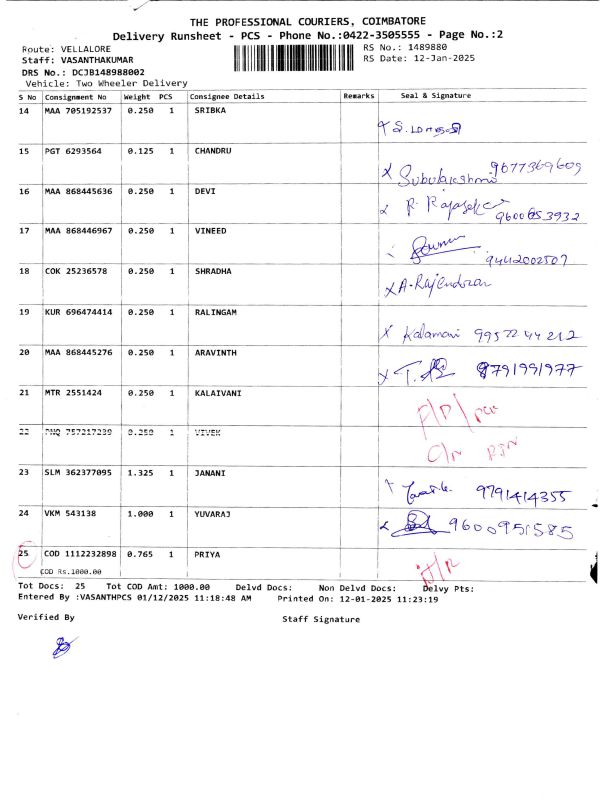 THE PROFESSIONAL COURIERS, COIMBATORE
Delivery Runsheet - PCS - Phone No.:0422-3505555 - Page No.:2
Route: VELLALORE
RS No.: 1489880
Staff: VASANTHAKUMAR
RS Date: 12-Jan-2025
DRS No.: DCJB148988002
Vehicle: Two Wheeler Delivery
S No Consignment No Weight PCS Consignee Details Remarks Seal & Signature
14 MAA 705192537 0.250 1 SRIBKA
15 PGT 6293564 0.125 1 CHANDRU
x Subulakshmi 9677369609
16 MAA 868445636 0.250 1 DEVI
x R. Rajasek 9600653932
17 MAA 868446967 0.250 1 VINEED
9442002507
18 COK 25236578 0.250 1 SHRADHA
x A. Rajendoran
19 KUR 696474414 0.250 1 RALINGAM
x Kalamani 9957244212
20 MAA 868445276 0.250 1 ARAVINTH
x 8791991977
21 MTR 2551424 0.250 1 KALAIVANI
22 PNQ 757217239 0.250 1 VIVEK
23 SLM 362377095 1.325 1 JANANI
9791414355
24 VKM 543138 1.000 1 YUVARAJ
x 9600951585
25 COD 1112232898 0.765 1 PRIYA
COD Rs.1000.00
Tot Docs: 25 Tot COD Amt: 1000.00 Delvd Docs: Non Delvd Docs: Delvy Pts:
Entered By :VASANTHPCS 01/12/2025 11:18:48 AM Printed On: 12-01-2025 11:23:19
Verified By
Staff Signature